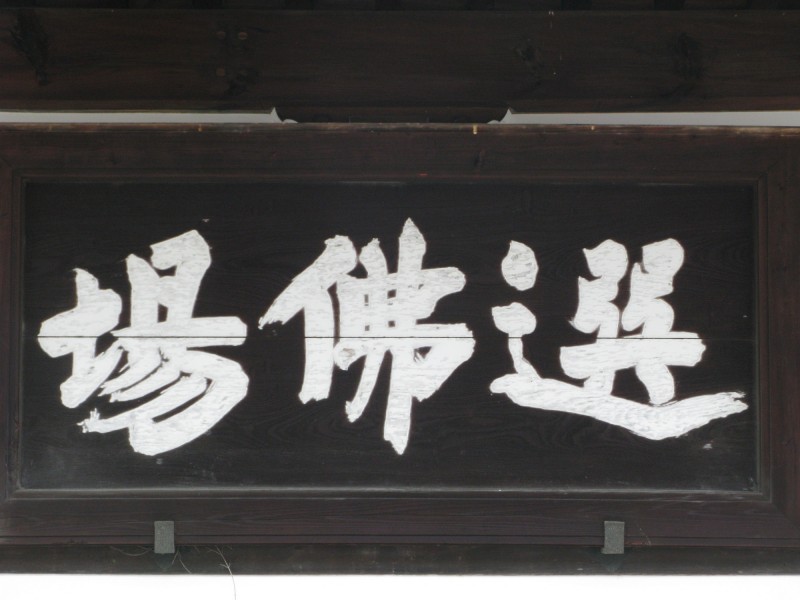 選佛場